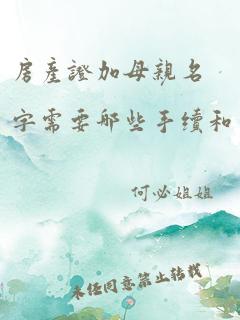 房產證加母親名
字需要哪些手續和
何必姐姐
未經同意禁止轉載